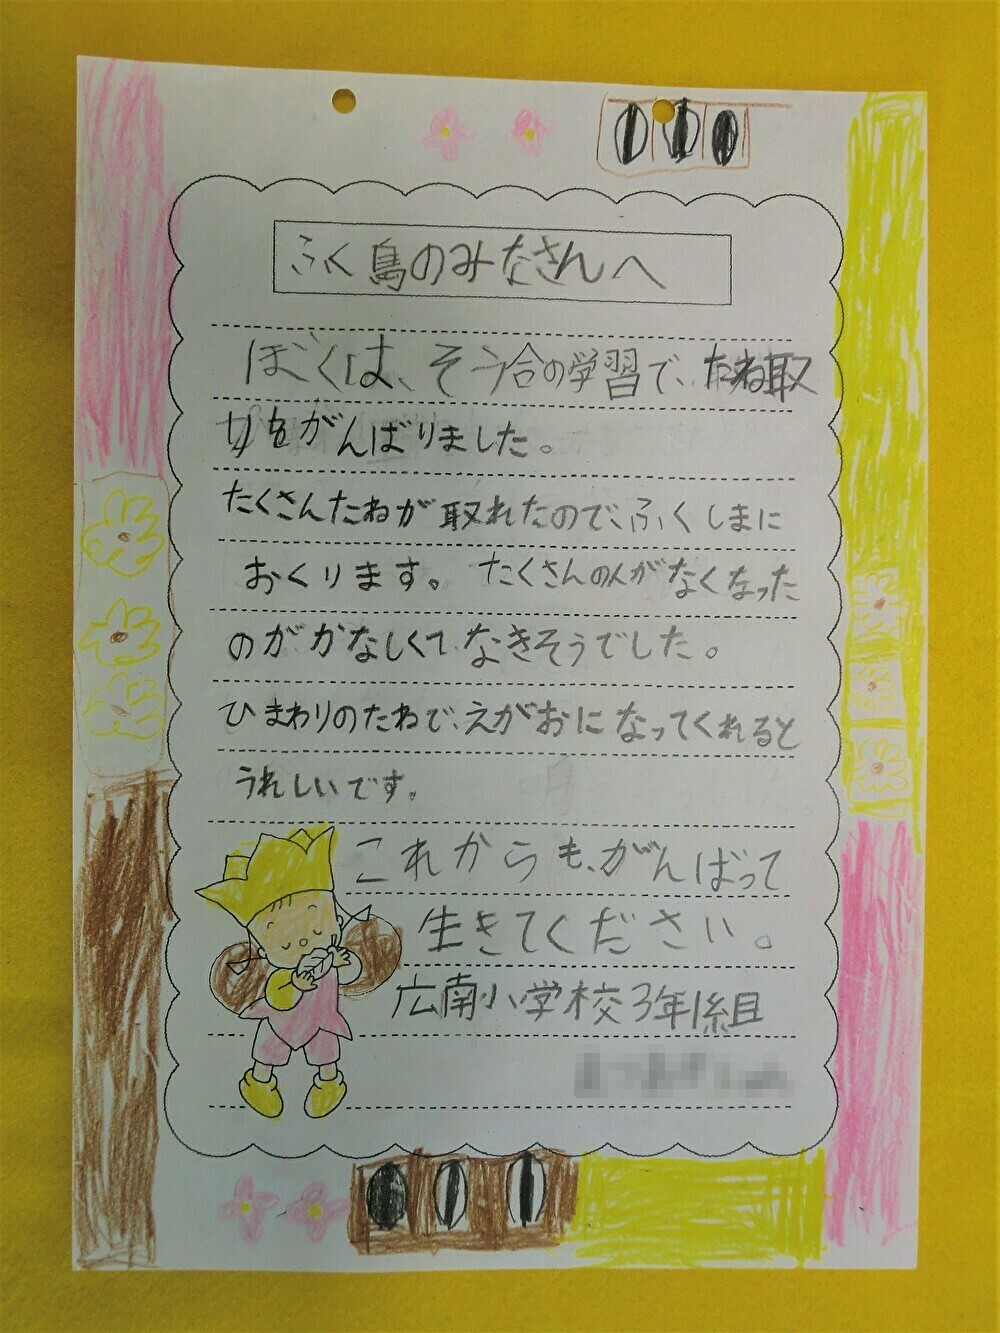 ふく島のみなさんへ
ぼくは、そう合の学習で、たね取
りをがんばりました。
たくさんたねが取れたので、ふくしまに
おくります。たくさんの人がなくなった
のがかなしくて、なきそうでした。
ひまわりのたねで、えがおになってくれると
うれしいです。
これからも、がんばって
生きてください。
広南小学校3年1組